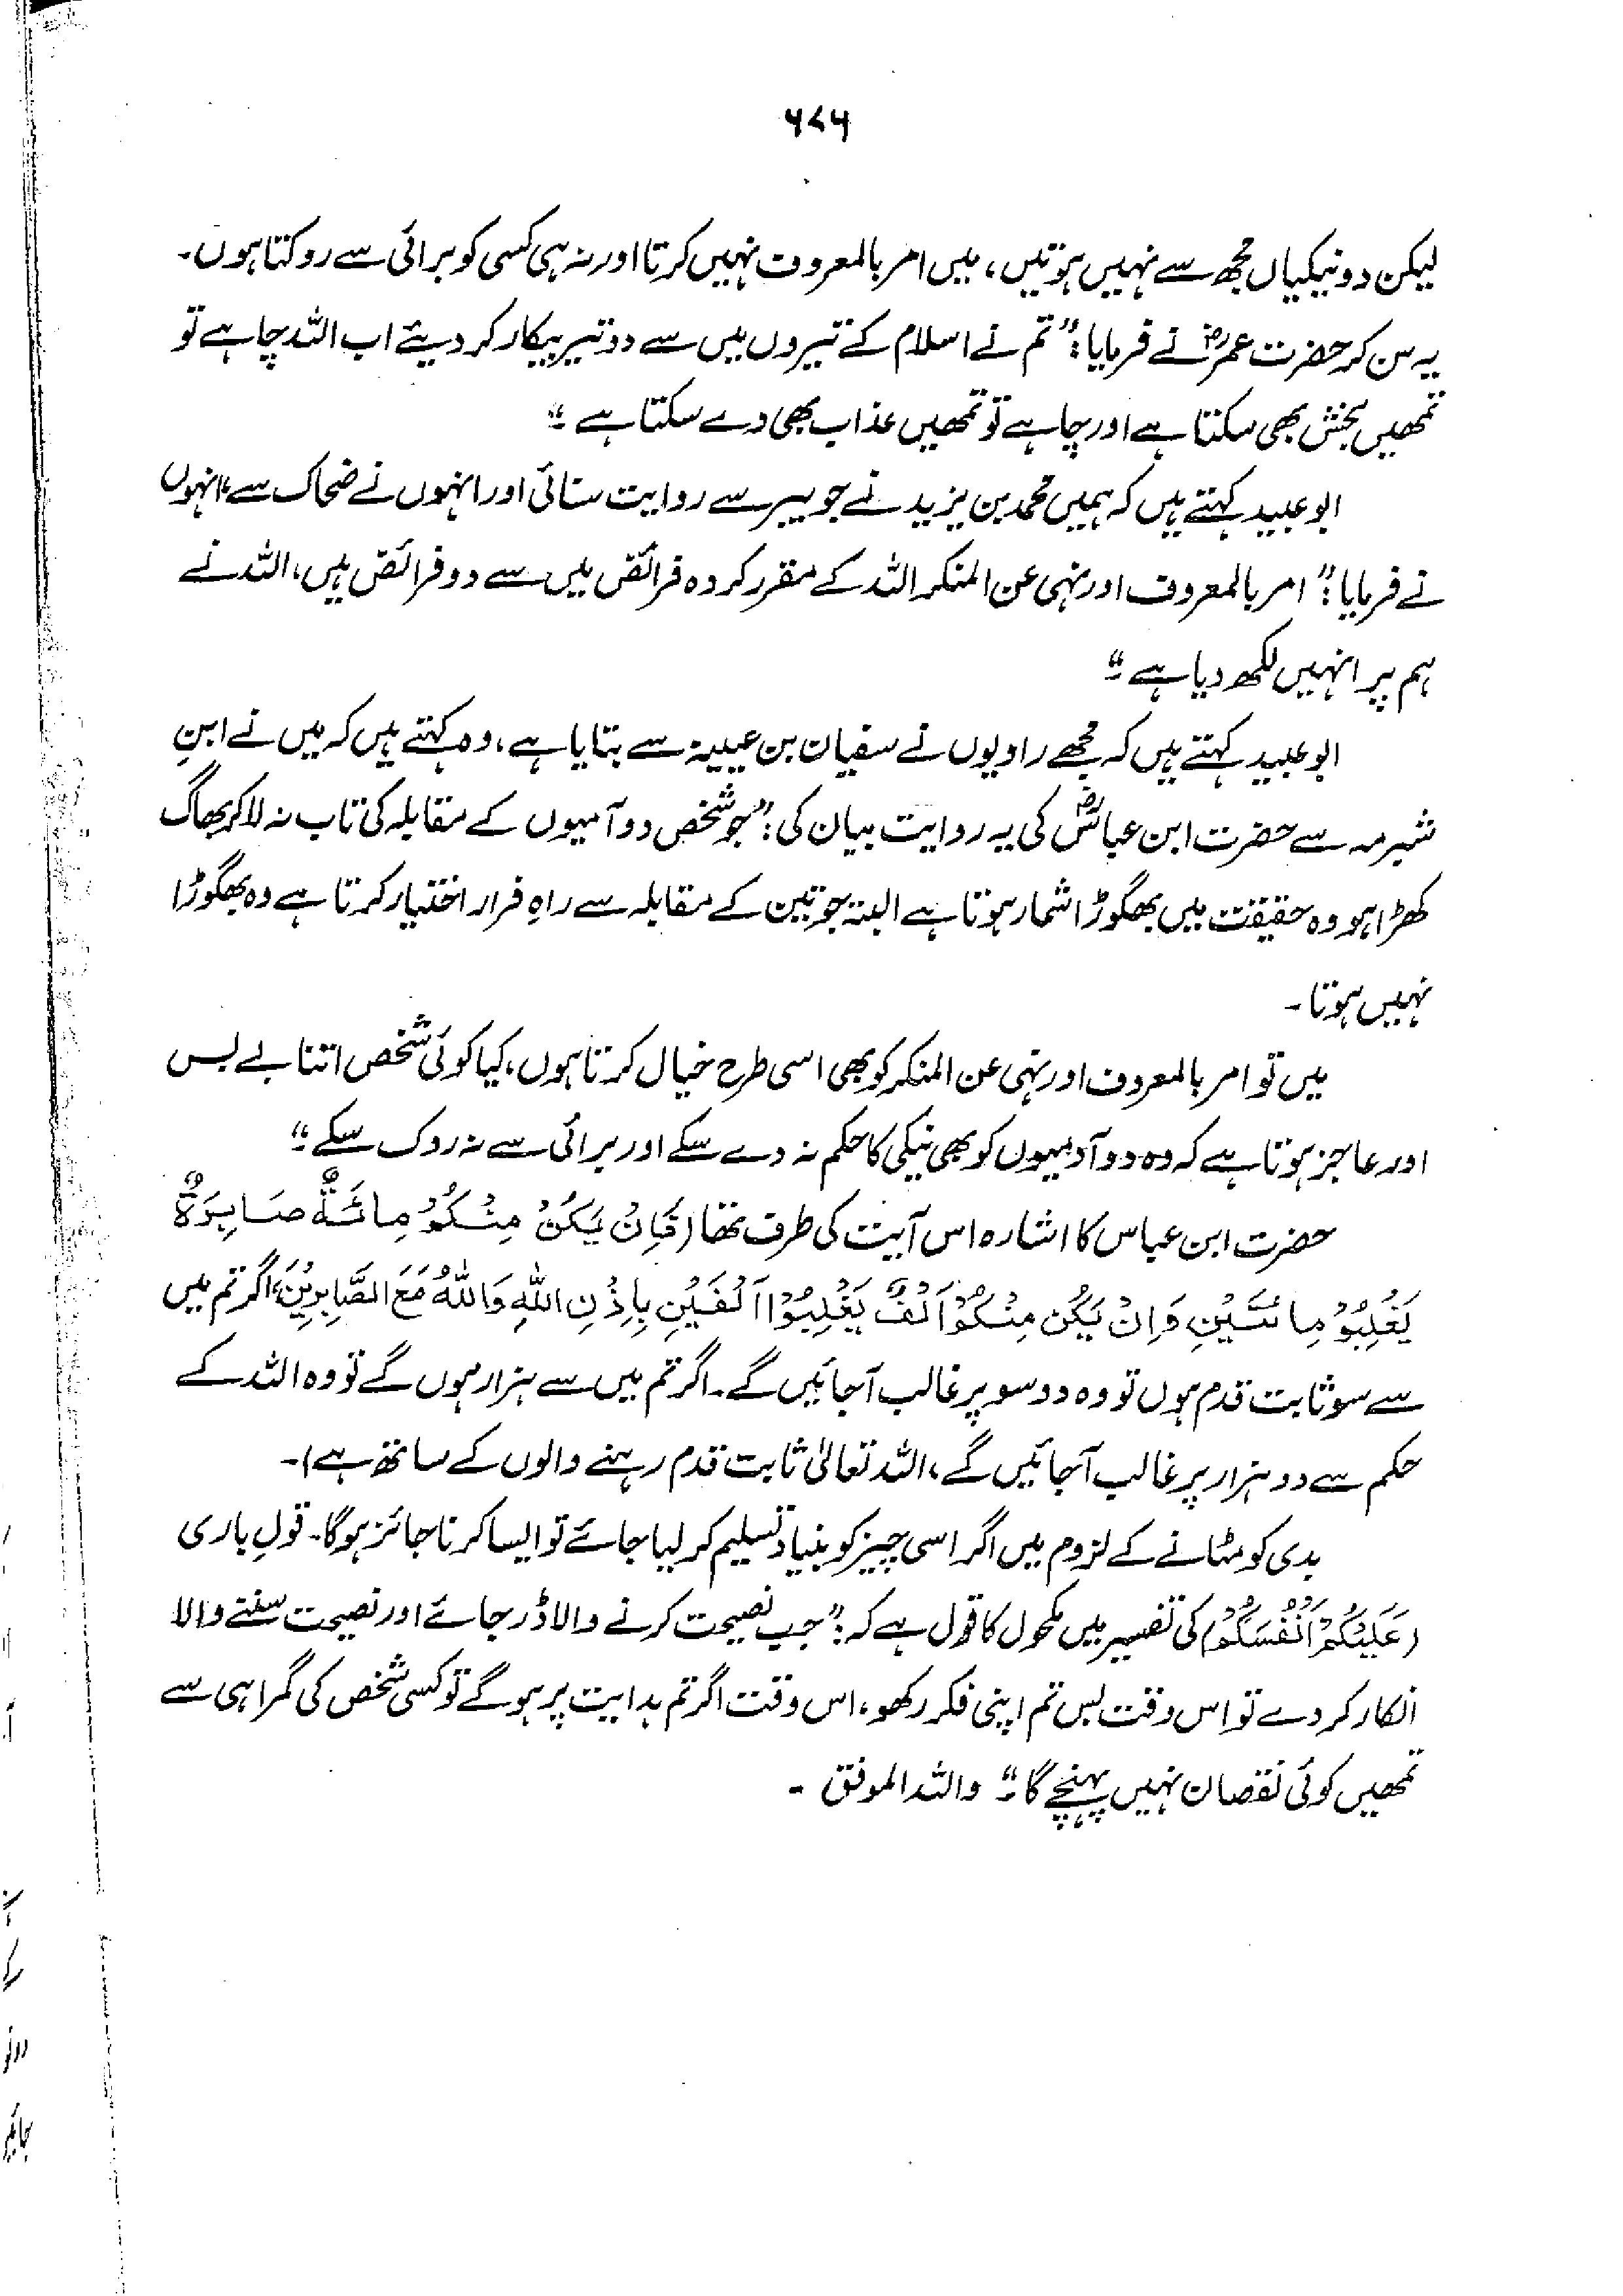 ۶۷۶
لیکن دو نیکیاں مجھ سے نہیں ہوتیں، میں امر بالمعروف نہیں کرتا اور نہ ہی کسی کو برائی سے روکتا ہوں۔
یہ سن کر حضرت عمرؓ نے فرمایا: "تم نے اسلام کے تیروں میں سے دو تیر بیکار کر دیئے اب اللہ چاہے تو
تمھیں بخش بھی سکتا ہے اور چاہے تو تمھیں عذاب بھی دے سکتا ہے۔"
ابو عبید کہتے ہیں کہ ہمیں محمد بن یزید نے جویبر سے روایت سنائی اور انہوں نے ضحاک سے، انہوں
نے فرمایا: "امر بالمعروف اور نہی عن المنکر اللہ کے مقرر کردہ فرائض میں سے دو فرائض ہیں، اللہ نے
ہم پر انہیں لکھ دیا ہے۔"
ابو عبید کہتے ہیں کہ مجھے راویوں نے سفیان بن عیینہ سے بتایا ہے، وہ کہتے ہیں کہ میں نے ابنِ
شبرمہ سے حضرت ابن عباسؓ کی یہ روایت بیان کی: "جو شخص دو آمیوں کے مقابلہ کی تاب نہ لا کر بھاگ
کھڑا ہو وہ حقیقت میں بھگوڑا شمار ہوتا ہے البتہ جو تین کے مقابلہ سے راہِ فرار اختیار کرتا ہے وہ بھگوڑا
نہیں ہوتا۔
میں تو امر بالمعروف اور نہی عن المنکر کو بھی اسی طرح خیال کرتا ہوں، کیا کوئی شخص اتنا بے بس
اور عاجز ہوتا ہے کہ وہ دو آدمیوں کو بھی نیکی کا حکم نہ دے سکے اور برائی سے نہ روک سکے۔"
حضرت ابن عباس کا اشارہ اس آیت کی طرف تھا (فَاِنْ یَکُنْ مِنْکُمْ مِائَةٌ صَابِرَةٌ
یَغْلِبُوْ مِائَتَیْنِ وَاِنْ یَکُنْ مِنْکُمْ اَلْفٌ یَغْلِبُوْا اَلْفَیْنِ بِاِذْنِ اللّٰہِ وَاللّٰہُ مَعَ الصَّابِرِیْنَ، اگر تم میں
سے سو ثابت قدم ہوں تو وہ دو سو پر غالب آجائیں گے۔ اگر تم میں سے ہزار ہوں گے تو وہ اللہ کے
حکم سے دو ہزار پر غالب آجائیں گے، اللہ تعالیٰ ثابت قدم رہنے والوں کے ساتھ ہے)۔
بدی کو مٹانے کے لزوم میں اگر اسی چیز کو بنیاد تسلیم کر لیا جائے تو ایسا کرنا جائز ہوگا۔ قولِ باری
(عَلَیْکُمْ اَنْفُسَکُمْ) کی تفسیر میں مکحول کا قول ہے کہ: "جب نصیحت کرنے والا ڈر جائے اور نصیحت سننے والا
انکار کر دے تو اِس وقت بس تم اپنی فکر رکھو، اس وقت اگر تم ہدایت پر ہو گے تو کسی شخص کی گمراہی سے
تمھیں کوئی نقصان نہیں پہنچے گا۔" واللہ الموفق ۔